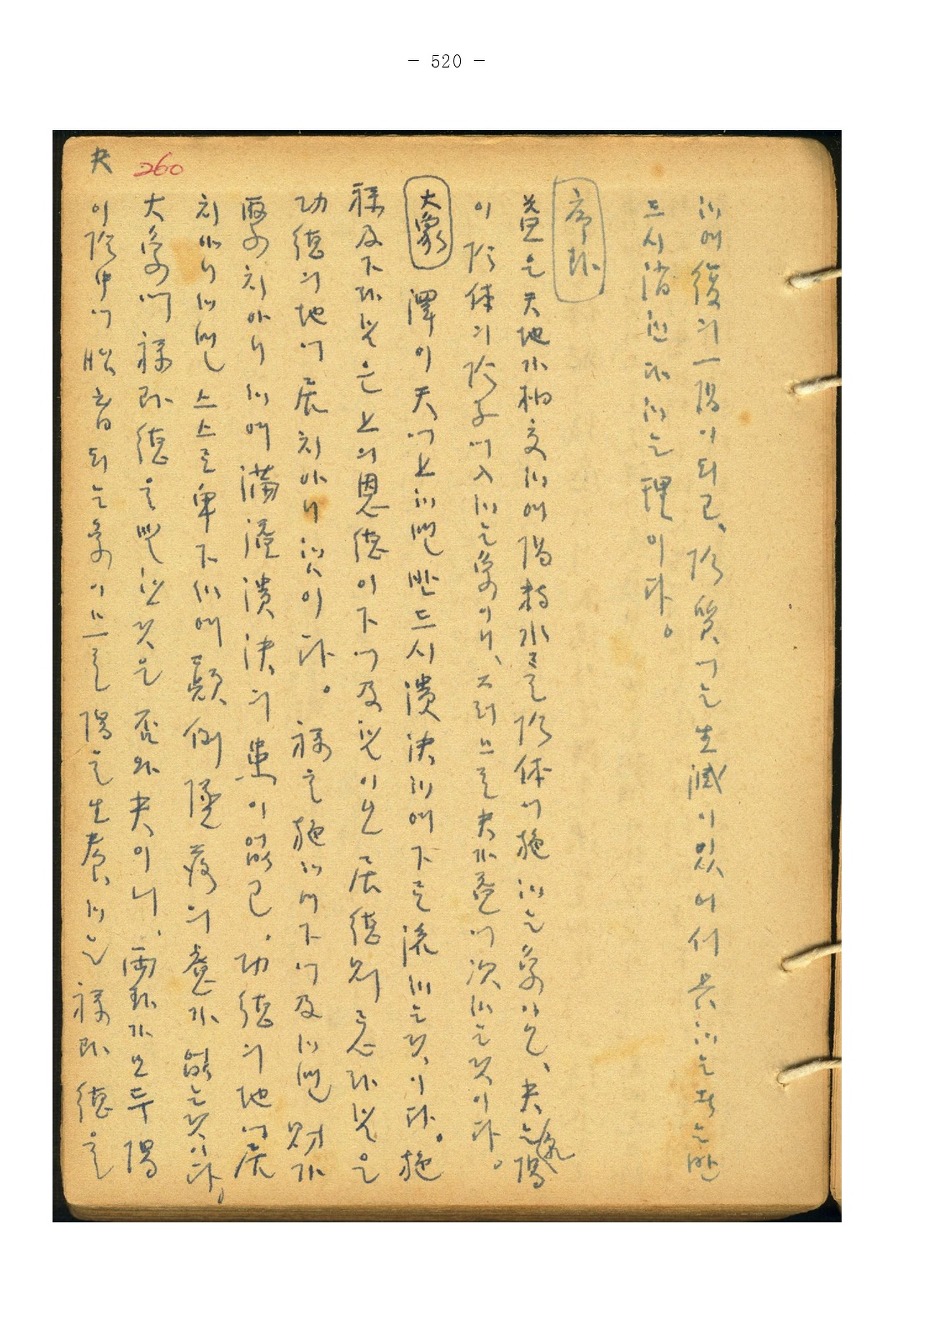 - 520 -
夬 260
하여 復의 一陽이 되고, 陰質에는 生滅이 있어서 長하는 者는 반
드시 消한다 하는 理이다。
序卦
益은 天地가 相交하여 陽精水를 陰体에 施하는 象이오, 夬는 陽
이 陰体의 陰子에 入하는 象이니, 그러므로 夬가 益에 次하는 것이다。
大象 澤이 天에 上하면 반드시 潰決하여 下로 流하는 것이다。 施
祿及下라 함은 上의 恩德이 下에 及함이오 居德則忌라 함은
功德의 地에 居치 아니함이다。 祿을 施하여 下에 及하면 財가
厚치 아니하여 滿溢潰決의 患이 없고, 功德의 地에 居
치 아니하면 스스로 卑下하여 顚倒墜落의 意가 없는 것이다,
大象에 祿과 德을 말한 것은 否와 夬이니, 兩卦가 모두 陽
이 陰中에 되는 象이므로 陽을 生養하는 祿과 德을